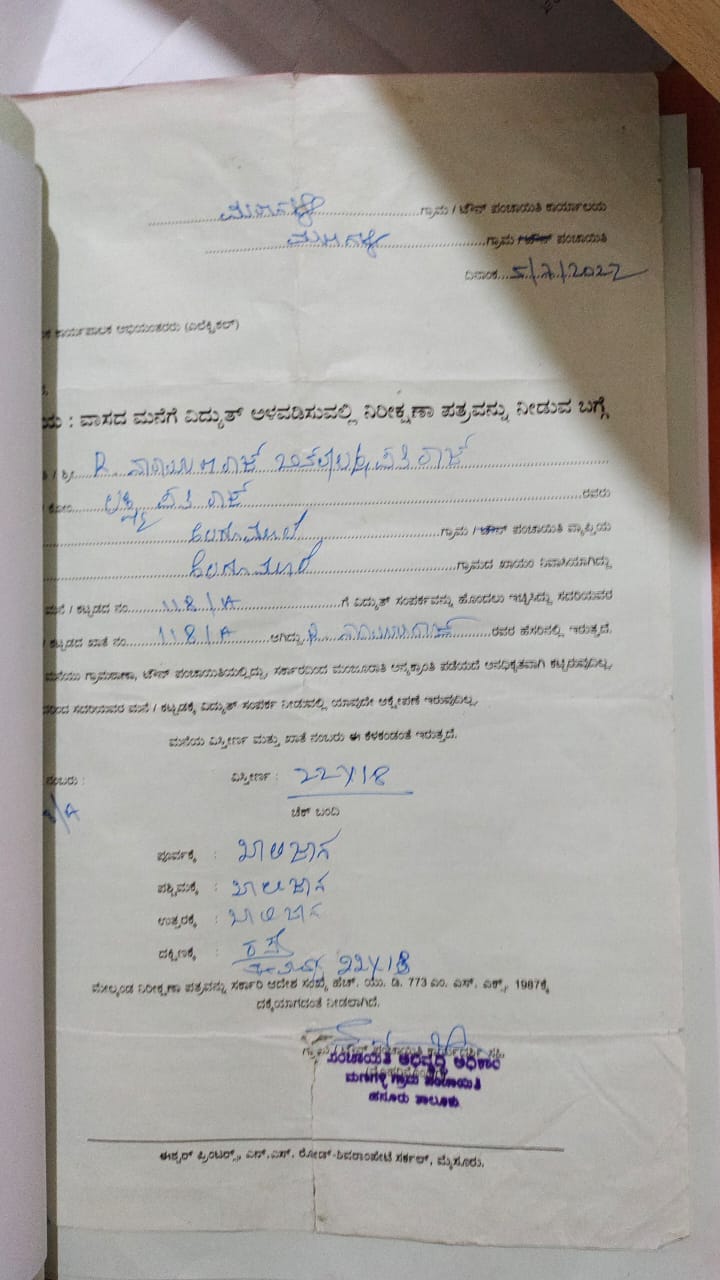 ಮಣಗಳ್ಳಿ ಗ್ರಾಮ / ಟೌನ್ ಪಂಚಾಯಿತಿ ಕಾರ್ಯಾಲಯ
ಮಣಗಳ್ಳಿ ಗ್ರಾಮ / ಟೌನ್ ಪಂಚಾಯಿತಿ
ದಿನಾಂಕ 5/7/2022
ಕಾರ್ಯಪಾಲಕ ಅಭಿಯಂತರರು (ಎಲೆಕ್ಟ್ರಿಕಲ್)
: ವಾಸದ ಮನೆಗೆ ವಿದ್ಯುತ್ ಅಳವಡಿಸುವಲ್ಲಿ ನಿರೀಕ್ಷಣಾ ಪತ್ರವನ್ನು ನೀಡುವ ಬಗ್ಗೆ
/ ಶ್ರೀ R. ನಾರಾಯಣರಾಜ್
/ ಕೋಂ ಲಕ್ಷ್ಮಿಪತಿ ರಾಜ್ ರವರು
ಗ್ರಾಮ / ಟೌನ್ ಪಂಚಾಯಿತಿ ವ್ಯಾಪ್ತಿಯ
ಗ್ರಾಮದ ಖಾಯಂ ನಿವಾಸಿಯಾಗಿದ್ದು
ಮನೆ / ಕಟ್ಟಡದ ನಂ. 118/A ಗೆ ವಿದ್ಯುತ್ ಸಂಪರ್ಕವನ್ನು ಹೊಂದಲು ಇಚ್ಛಿಸಿದ್ದು ಸದರಿಯವರ
/ ಕಟ್ಟಡದ ಖಾತೆ ನಂ. 118/A ಆಗಿದ್ದು R. ನಾರಾಯಣರಾಜ್ ರವರ ಹೆಸರಿನಲ್ಲಿ ಇರುತ್ತದೆ.
ಮನೆಯು ಗ್ರಾಮಠಾಣಾ, ಟೌನ್ ಪಂಚಾಯಿತಿಯಲ್ಲಿದ್ದು, ಸರ್ಕಾರದಿಂದ ಮಂಜೂರಾತಿ ಅನ್ಯಕ್ರಾಂತಿ ಪಡೆಯದೆ ಅನಧಿಕೃತವಾಗಿ ಕಟ್ಟಿರುವುದಿಲ್ಲ.
ಸದರಿಯವರ ಮನೆ / ಕಟ್ಟಡಕ್ಕೆ ವಿದ್ಯುತ್ ಸಂಪರ್ಕ ನೀಡುವಲ್ಲಿ ಯಾವುದೇ ಆಕ್ಷೇಪಣೆ ಇರುವುದಿಲ್ಲ.
ಮನೆಯ ವಿಸ್ತೀರ್ಣ ಮತ್ತು ಖಾತೆ ನಂಬರು ಈ ಕೆಳಕಂಡಂತೆ ಇರುತ್ತದೆ.
ನಂಬರು : ವಿಸ್ತೀರ್ಣ : 22X18
/A
ಚೆಕ್ ಬಂದಿ
ಪೂರ್ವಕ್ಕೆ : ಖಾಲಿ ಜಾಗ
ಪಶ್ಚಿಮಕ್ಕೆ : ಖಾಲಿ ಜಾಗ
ಉತ್ತರಕ್ಕೆ : ಖಾಲಿ ಜಾಗ
ದಕ್ಷಿಣಕ್ಕೆ : ರಸ್ತೆ
22X18
ಮೇಲ್ಕಂಡ ನಿರೀಕ್ಷಣಾ ಪತ್ರವನ್ನು ಸರ್ಕಾರಿ ಆದೇಶ ಸಂಖ್ಯೆ ಹೆಚ್. ಯು. ಡಿ. 773 ಎಂ. ಎಸ್. ಎಕ್ಸ್. 1987ಕ್ಕೆ
ದಕ್ಕೆಯಾಗದಂತೆ ನೀಡಲಾಗಿದೆ.
ಗ್ರಾಮ / ಟೌನ್ ಪಂಚಾಯಿತಿ ಕಾರ್ಯದರ್ಶಿ ಸಹಿ.
ಪಂಚಾಯಿತಿ ಅಭಿವೃದ್ಧಿ ಅಧಿಕಾರಿ
ಮಣಗಳ್ಳಿ ಗ್ರಾಮ ಪಂಚಾಯಿತಿ
ಹನೂರು ತಾಲೂಕು
ಈಶ್ವರ್ ಪ್ರಿಂಟರ್ಸ್, ಎನ್.ಎಸ್. ರೋಡ್-ಶಿವರಾಂಪೇಟೆ ಸರ್ಕಲ್, ಮೈಸೂರು.